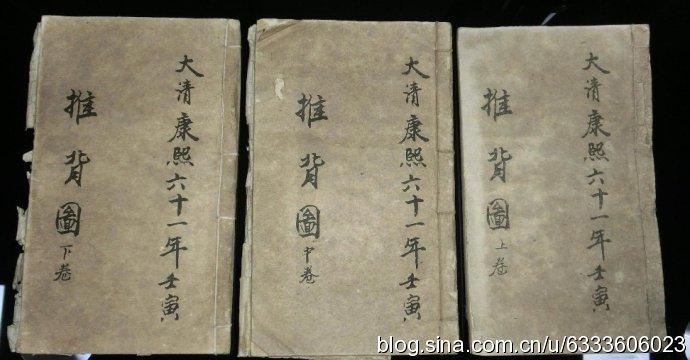 大清康熙六十一年壬寅
推背圖上卷
大清康熙六十一年壬寅
推背圖中卷
大清康熙六十一年壬寅
推背圖下卷
blog.sina.com.cn/u/6333606023